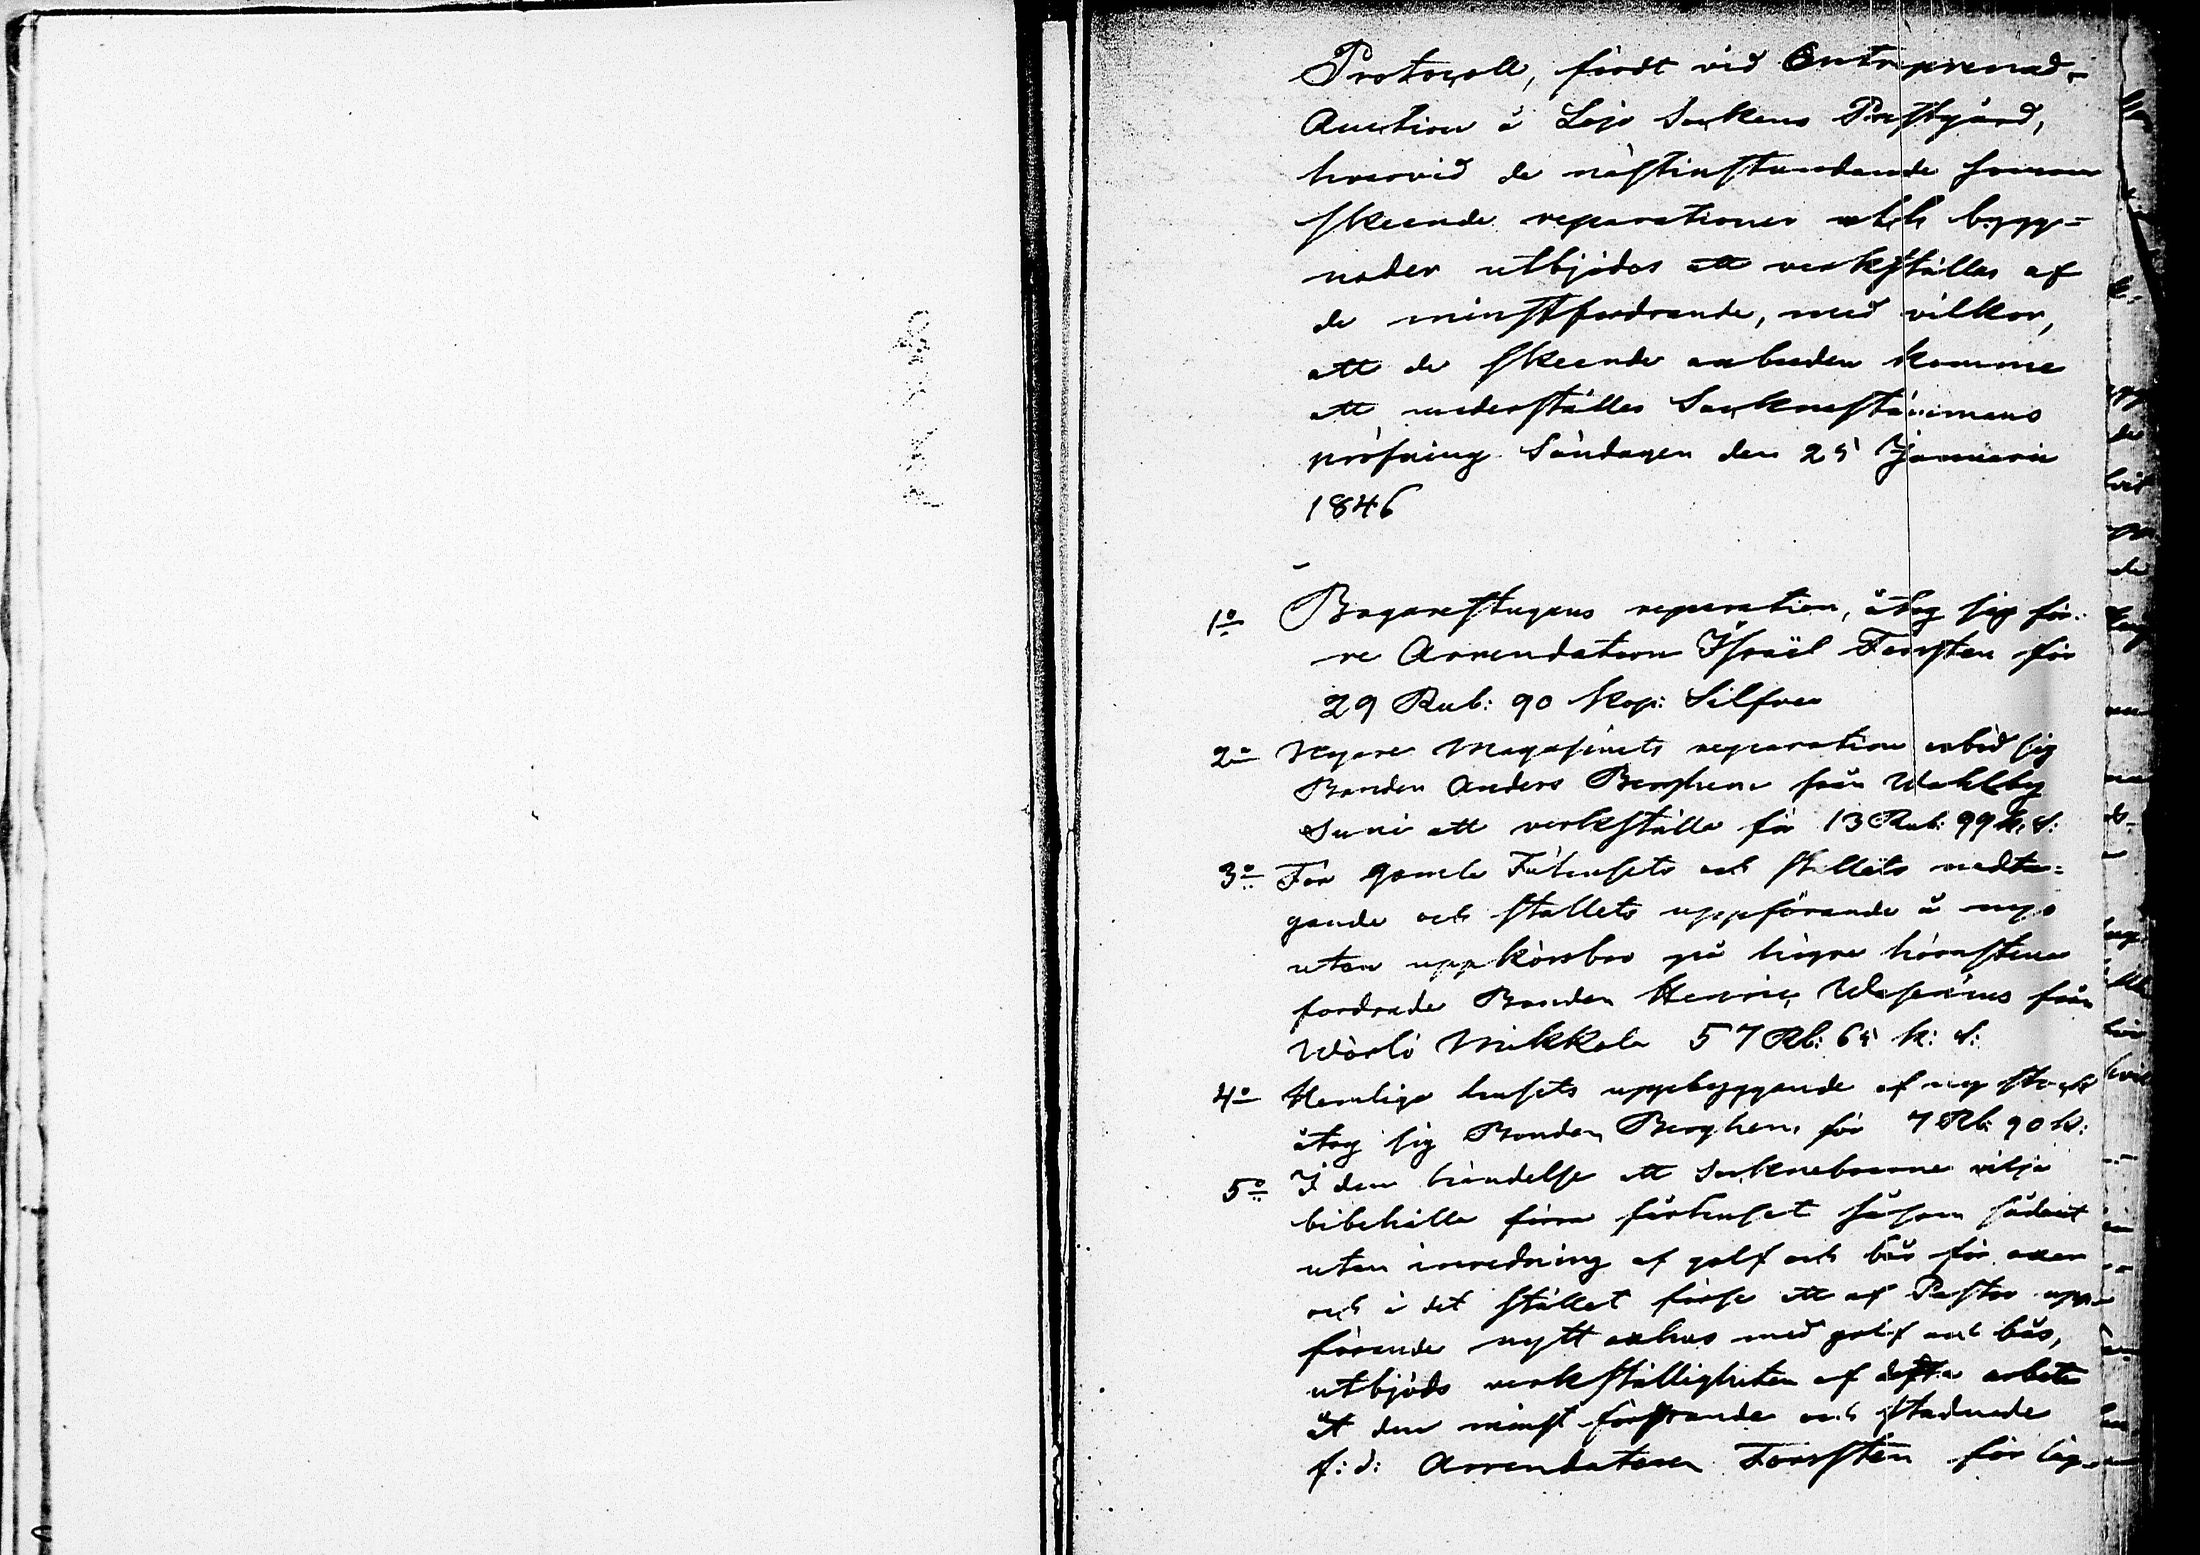 Protocoll, fördt vid Entreprenad-
Auction å Lojo Sockens Prestgård,
hvarvid de nästinstundande sommar
skeende reparationer och bygg=
nader utbjödos att verkställas af
de minstfordrande, med vilkor,
att de skeende anbuden komme
att underställas Socknestämmans
pröfning Söndagen den 25 Januarii
1846
1o Bagarestugans reparation, åtog sig för:
re Arrendatorn Israël Forssten för
29 Rub: 90 Kop: Silfver
2o Nyare Magasinets reparation erböd sig
Bonden Anders Berghem från Wahlby
Suni att verkställa för 13 Rub: 99 k. s:
3o För gamla Fähusets och stallets nedta=
gande och stallets uppförande å nyo
utan uppkörsbro på högre hörnstenar
fordrade Bonden Henric Wasenius från
Wärlö Mikkola 57 Rb: 65 k: s:
4o Hemliga husets uppbyggande af ny stock
åtog sig Bonden Berghem för 7 Rb: 90 k:
5o I den händelse att Sockneboerne vilja
bibehålla förra fårhuset såsom sådant
utan inredning af golf och bås för oxar
och i det stället förse ett af Pastor upp-
förande nytt oxhus med golf och bås,
utbjöds verkställigheten af detta arbete
åt den minst fordrande och stadnade
f: d: Arrendatoren Forssten för